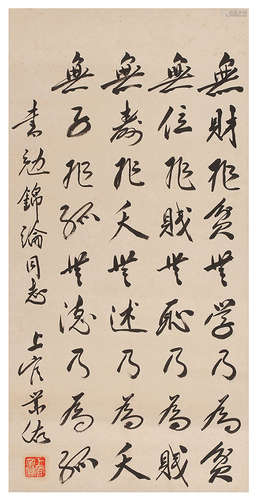 無財非貧無学乃為貧
無位非賤無恥乃為賤
無壽非夭無述乃為夭
無子非孤無德乃為孤
書勉錦綸同志 上官業佑